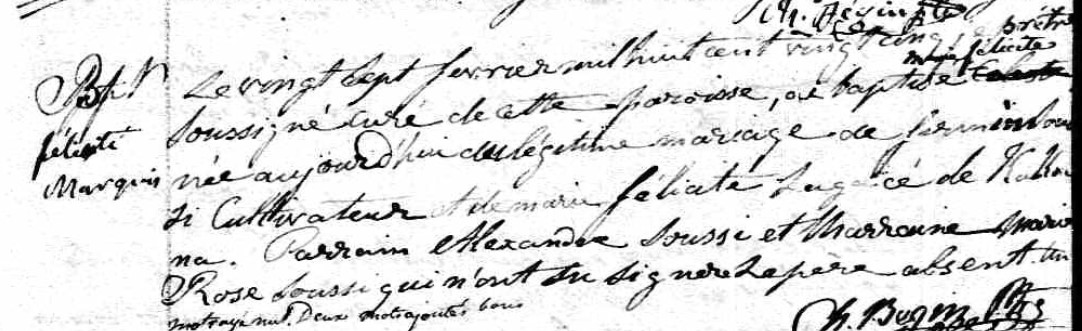 prêtre
Bpt Le vingt sept fevrier mil huit cent vingt cinq
marie félicité
félicité
Marquis
soussigné curé de cette paroisse, ai baptisé
née aujourd'hui du légitime mariage de firmin Sou
si Cultivateur et de marie félicité Lagacé de Kakou
na. Parrain Alexandre Soussi et Marraine Marie
Rose Soussi qui n'ont su signer le pere absent. un
mot rayé nul. Deux mots ajoutés bons